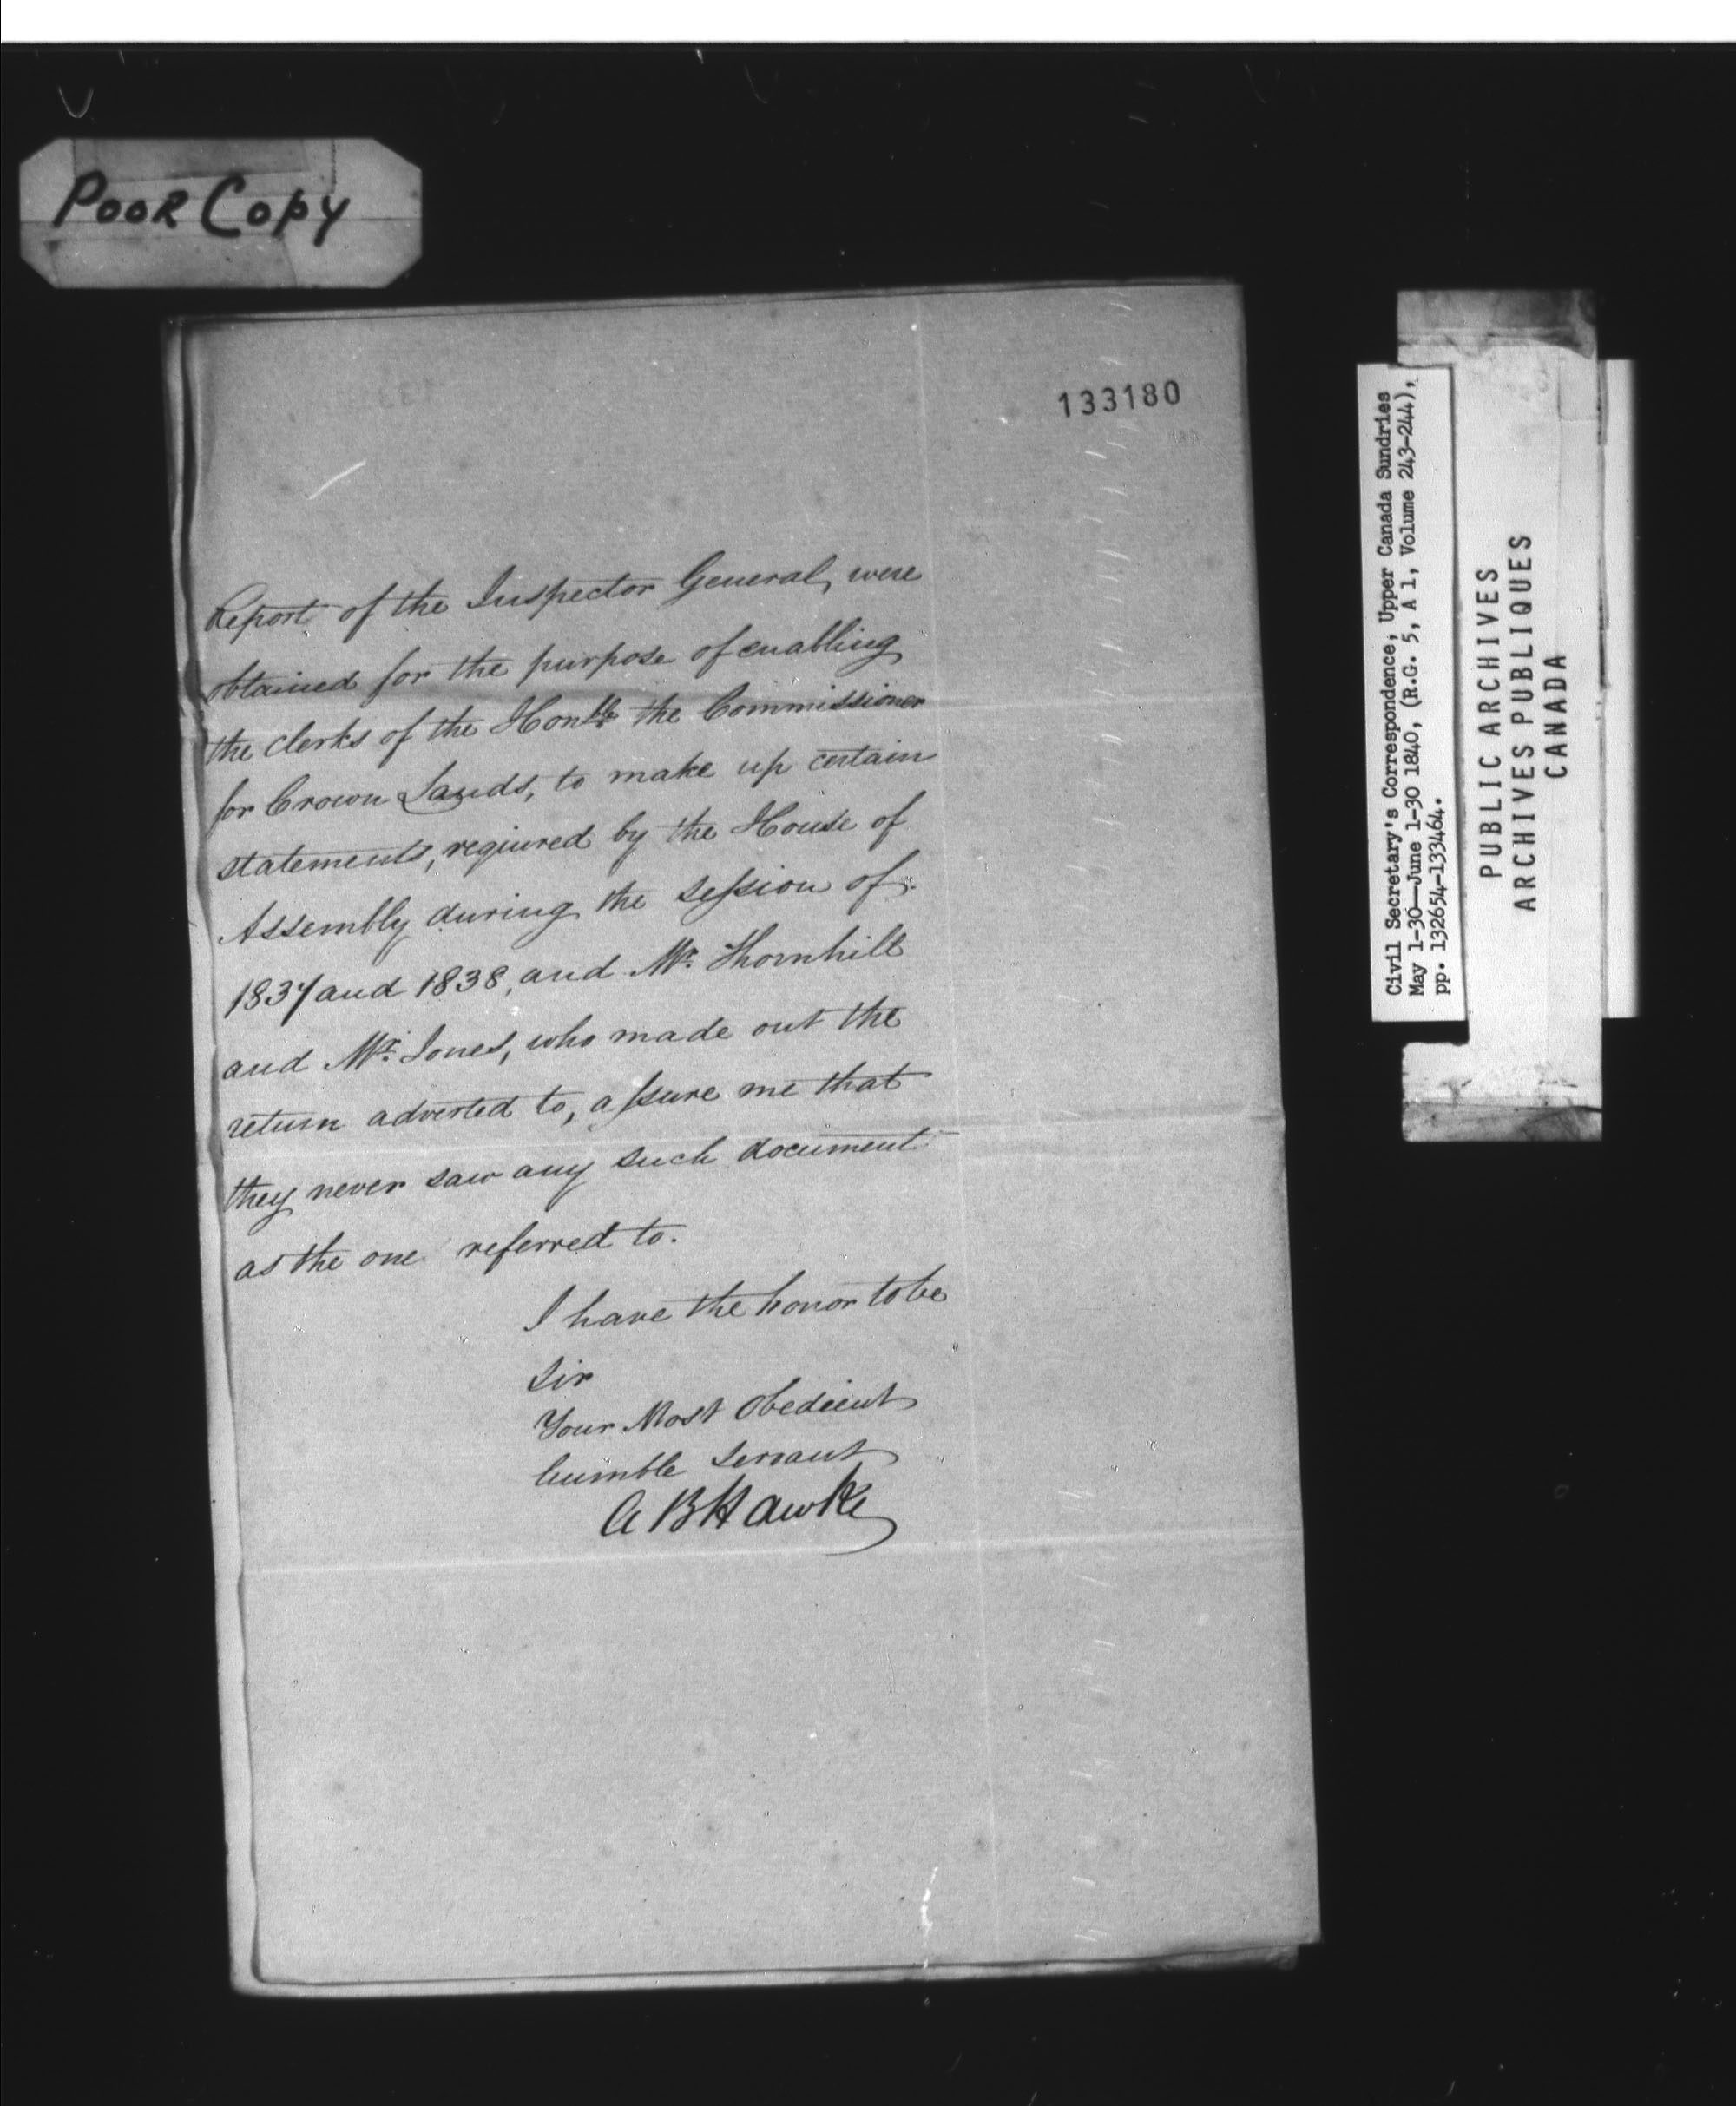 Poor Copy
133180
Report of the Inspector General, were
obtained for the purpose of enabling
the clerks of the Honble the Commissioner
for Crown Lands, to make up certain
statements, required by the House of
Assembly during the session of
1837 and 1838, and Mr. Thornhill
and Mr. Jones, who made out the
return adverted to, assure me that
they never saw any such document
as the one referred to.
I have the honor to be
Sir
Your Most Obedient
humble Servant
A B Hawke
Civil Secretary's Correspondence, Upper Canada Sundries
May 1-30—June 1-30 1840, (R.G. 5, A 1, Volume 243-244),
pp. 132654-133464.
PUBLIC ARCHIVES
ARCHIVES PUBLIQUES
CANADA